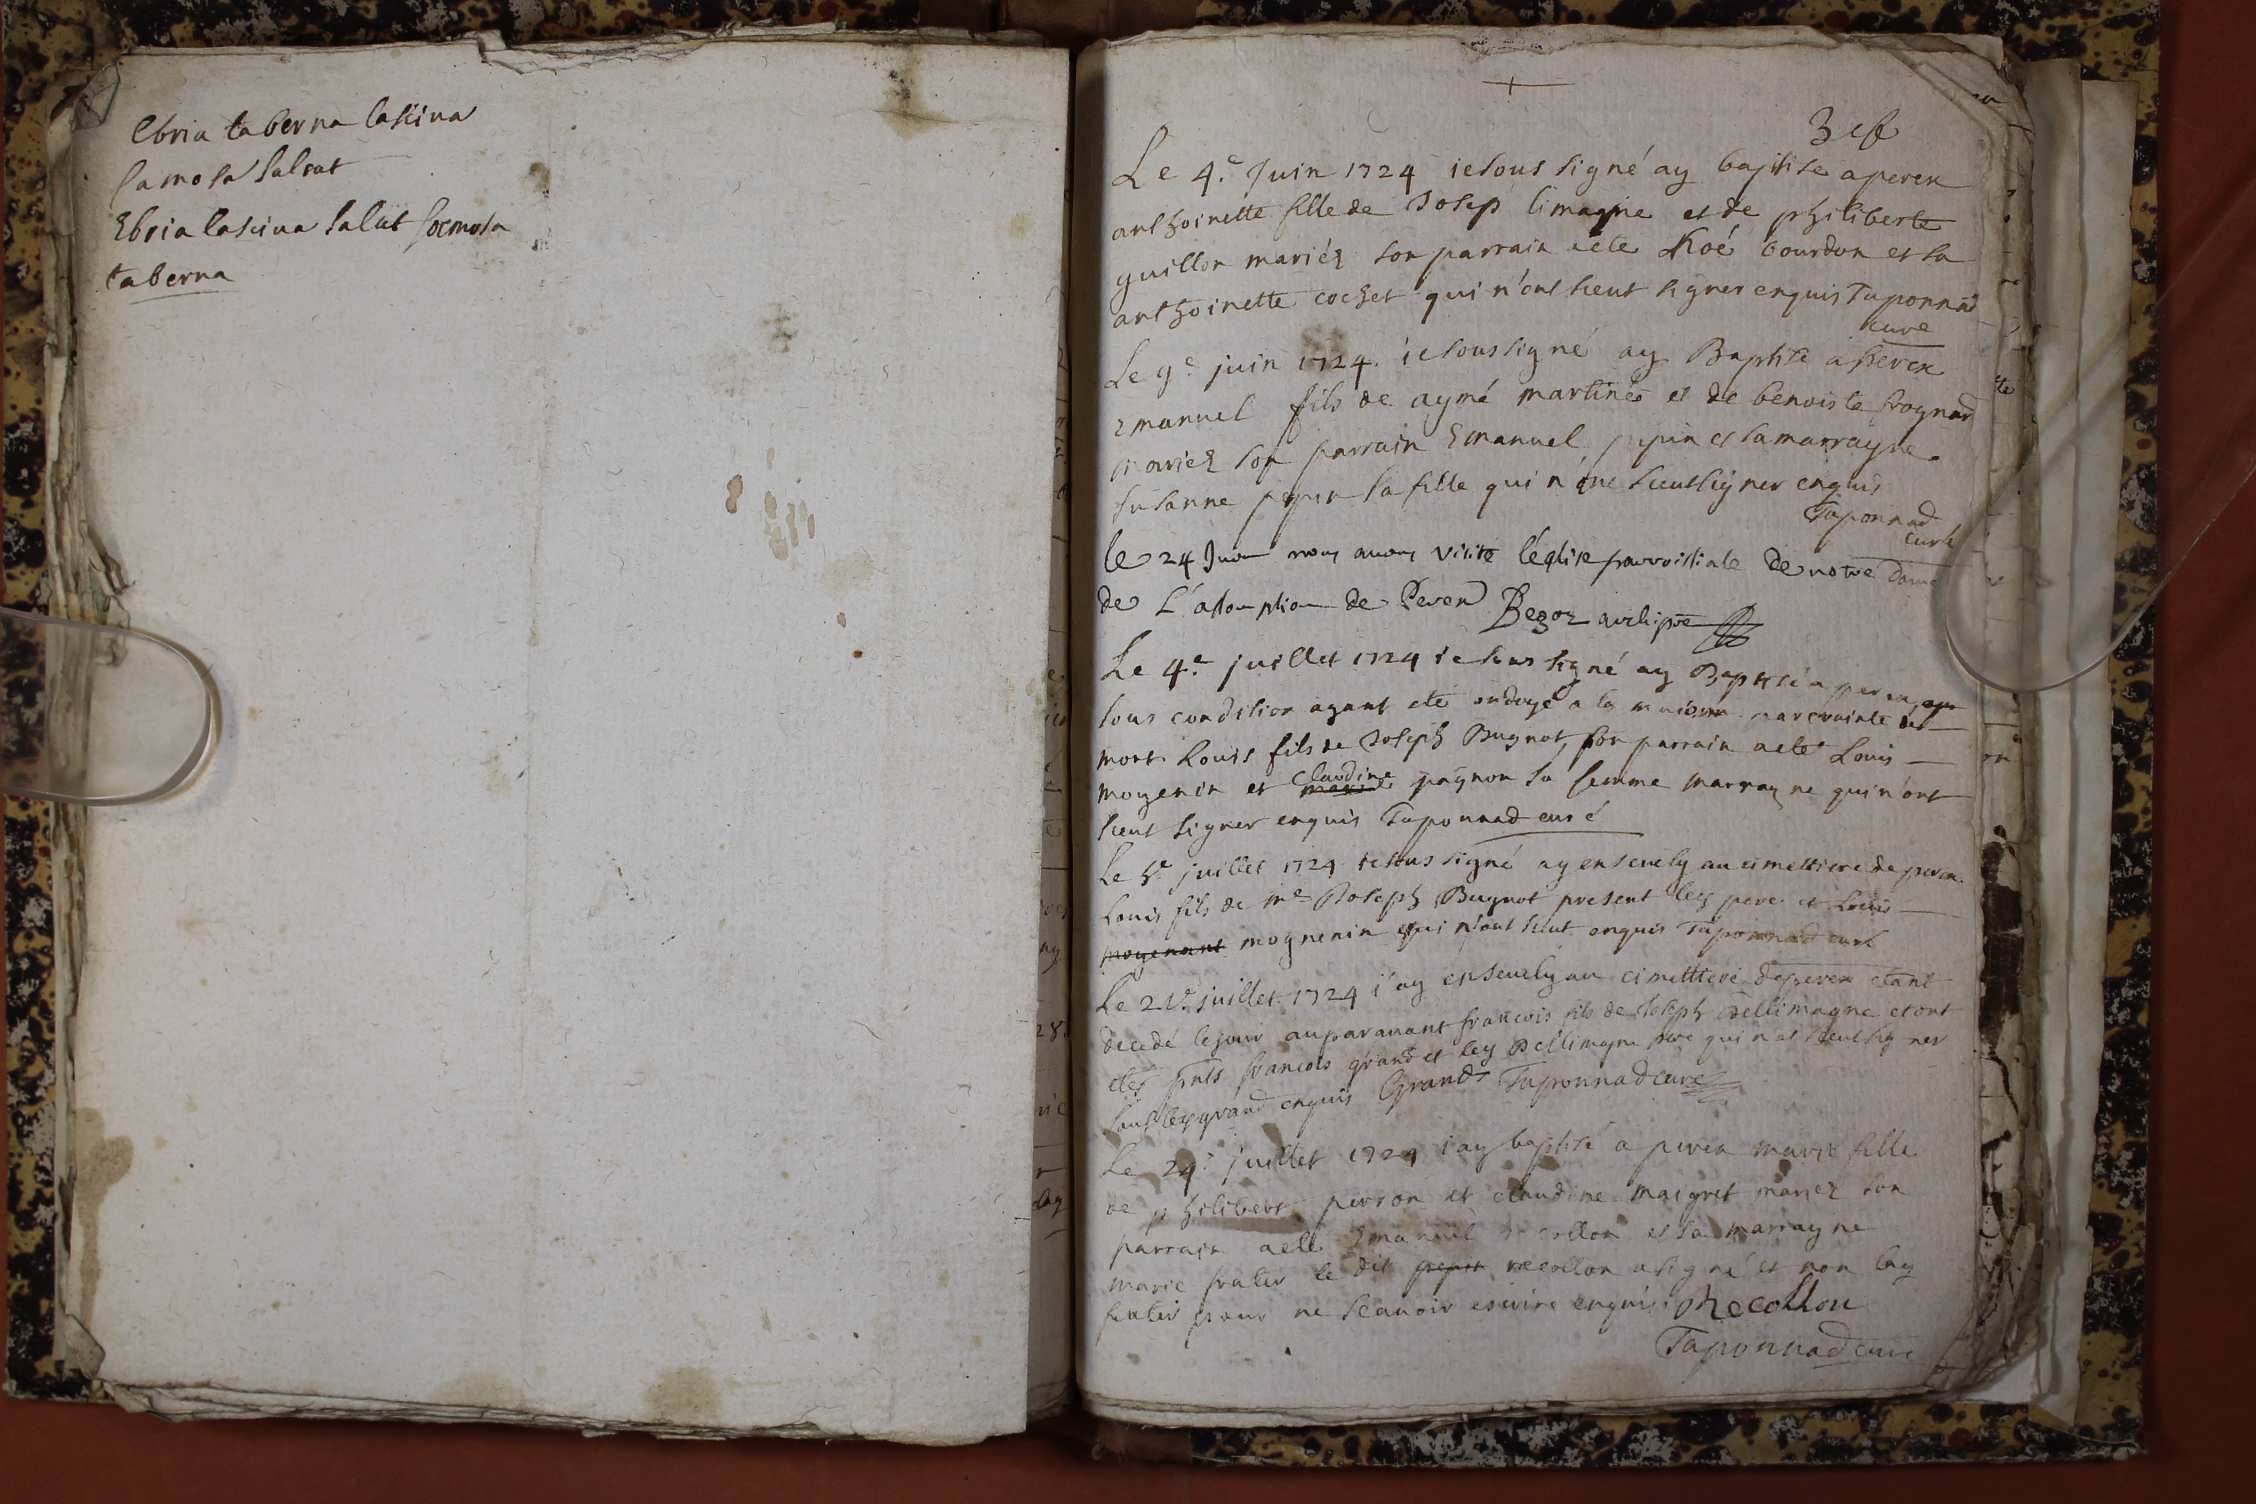 Ebria taberna lasciua
famosa salcat
Ebria lasciua salut formosa
taberna
3e f
Le 4.e Juin 1724 ie sous signé ay baptise a perex
anthoinette fille de Josep limagne et de philiberte
guillon mariéz son parrain a ete Noé bourdon et sa
anthoinette cochet qui n'ont sceut signer enquis Taponnad
curé
Le 9.e juin 1724. ie soussigné ay Baptise a perex
Emanuel fils de aymé martinés et de benoiste frognard
mariez son parrain Emanuel pepin et sa marrayne
susanne pepin sa fille qui n'ont sceut signer enquis
Taponnad
curé
le 24 Juin nous auons visité l'église parroissiale de notre dame
de L'assomption de Perex Begoz archipre
Le 4.e juillet 1724 ie sous signé ay Baptisé a perex
sous condition ayant eté ondoyé a la maison par crainte de
mort Louis fils de Joseph Bugnot, son parrain a ete Louis
moyenin et Claudine pagnon sa femme marrayne qui n'ont
sceut signer enquis Taponnad curé
Le 5.e juillet 1724 ie sous signé ay enseuely au cimettiere de perex
Louis fils de me Joseph Bugnot present les pere et Louis
moyenant mognenin qui n'ont sceut enquis Taponnad curé
Le 21.e juillet 1724 i'ay enseuely au cimettiere de perex etant
decedé le jour auparauant francois fils de Joseph dellimagne et ont
etés pnts francois grand et ley Dellimagne pere qui n'at sceut signer
sauf ley grand enquis Grand Taponnad curé
Le 29.e juillet 1724 i'ay baptisé a perex marie fille
de philibert perron et claudine maigret mariez son
parrain a ete Emanuel recollon et sa marrayne
marie frater le dit recollon a signé et non lay
frater pour ne scauoir escrire enquis. Recollon
Taponnad curé